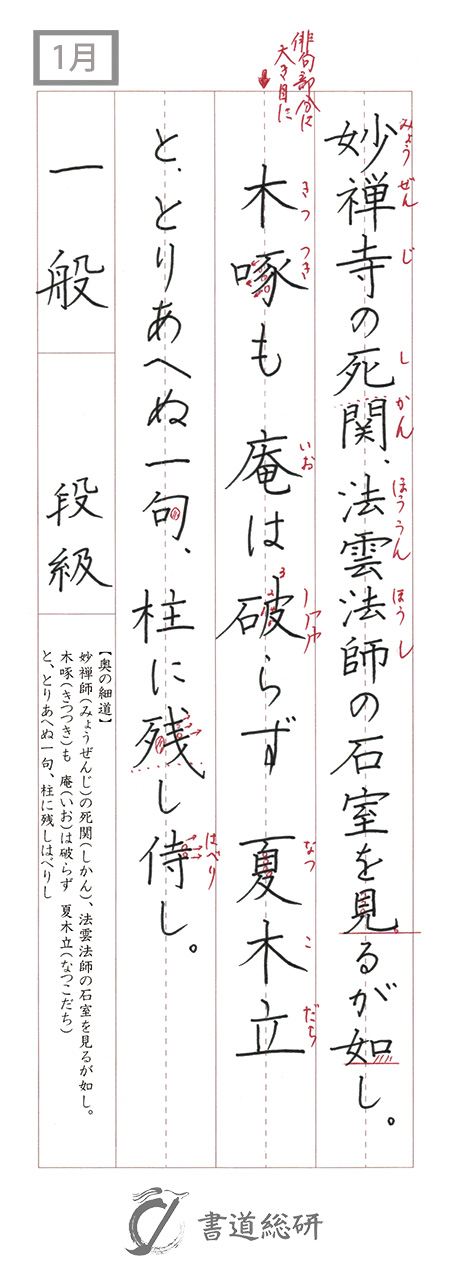 1月
俳句部分は
大き目に
妙禅寺の死関、法雲法師の石室を見るが如し。
みょう ぜん じ し かん ほううん ほう し
木啄も 庵は破らず 夏木立
きつ つき いお なつ こ だち
と、とりあへぬ一句、柱に残し侍し。
はべり
一般
段級
【奥の細道】
妙禅師(みょうぜんじ)の死関(しかん)、法雲法師の石室を見るが如し。
木啄(きつつき)も 庵(いお)は破らず 夏木立(なつこだち)
と、とりあへぬ一句、柱に残しはべりし
書道総研